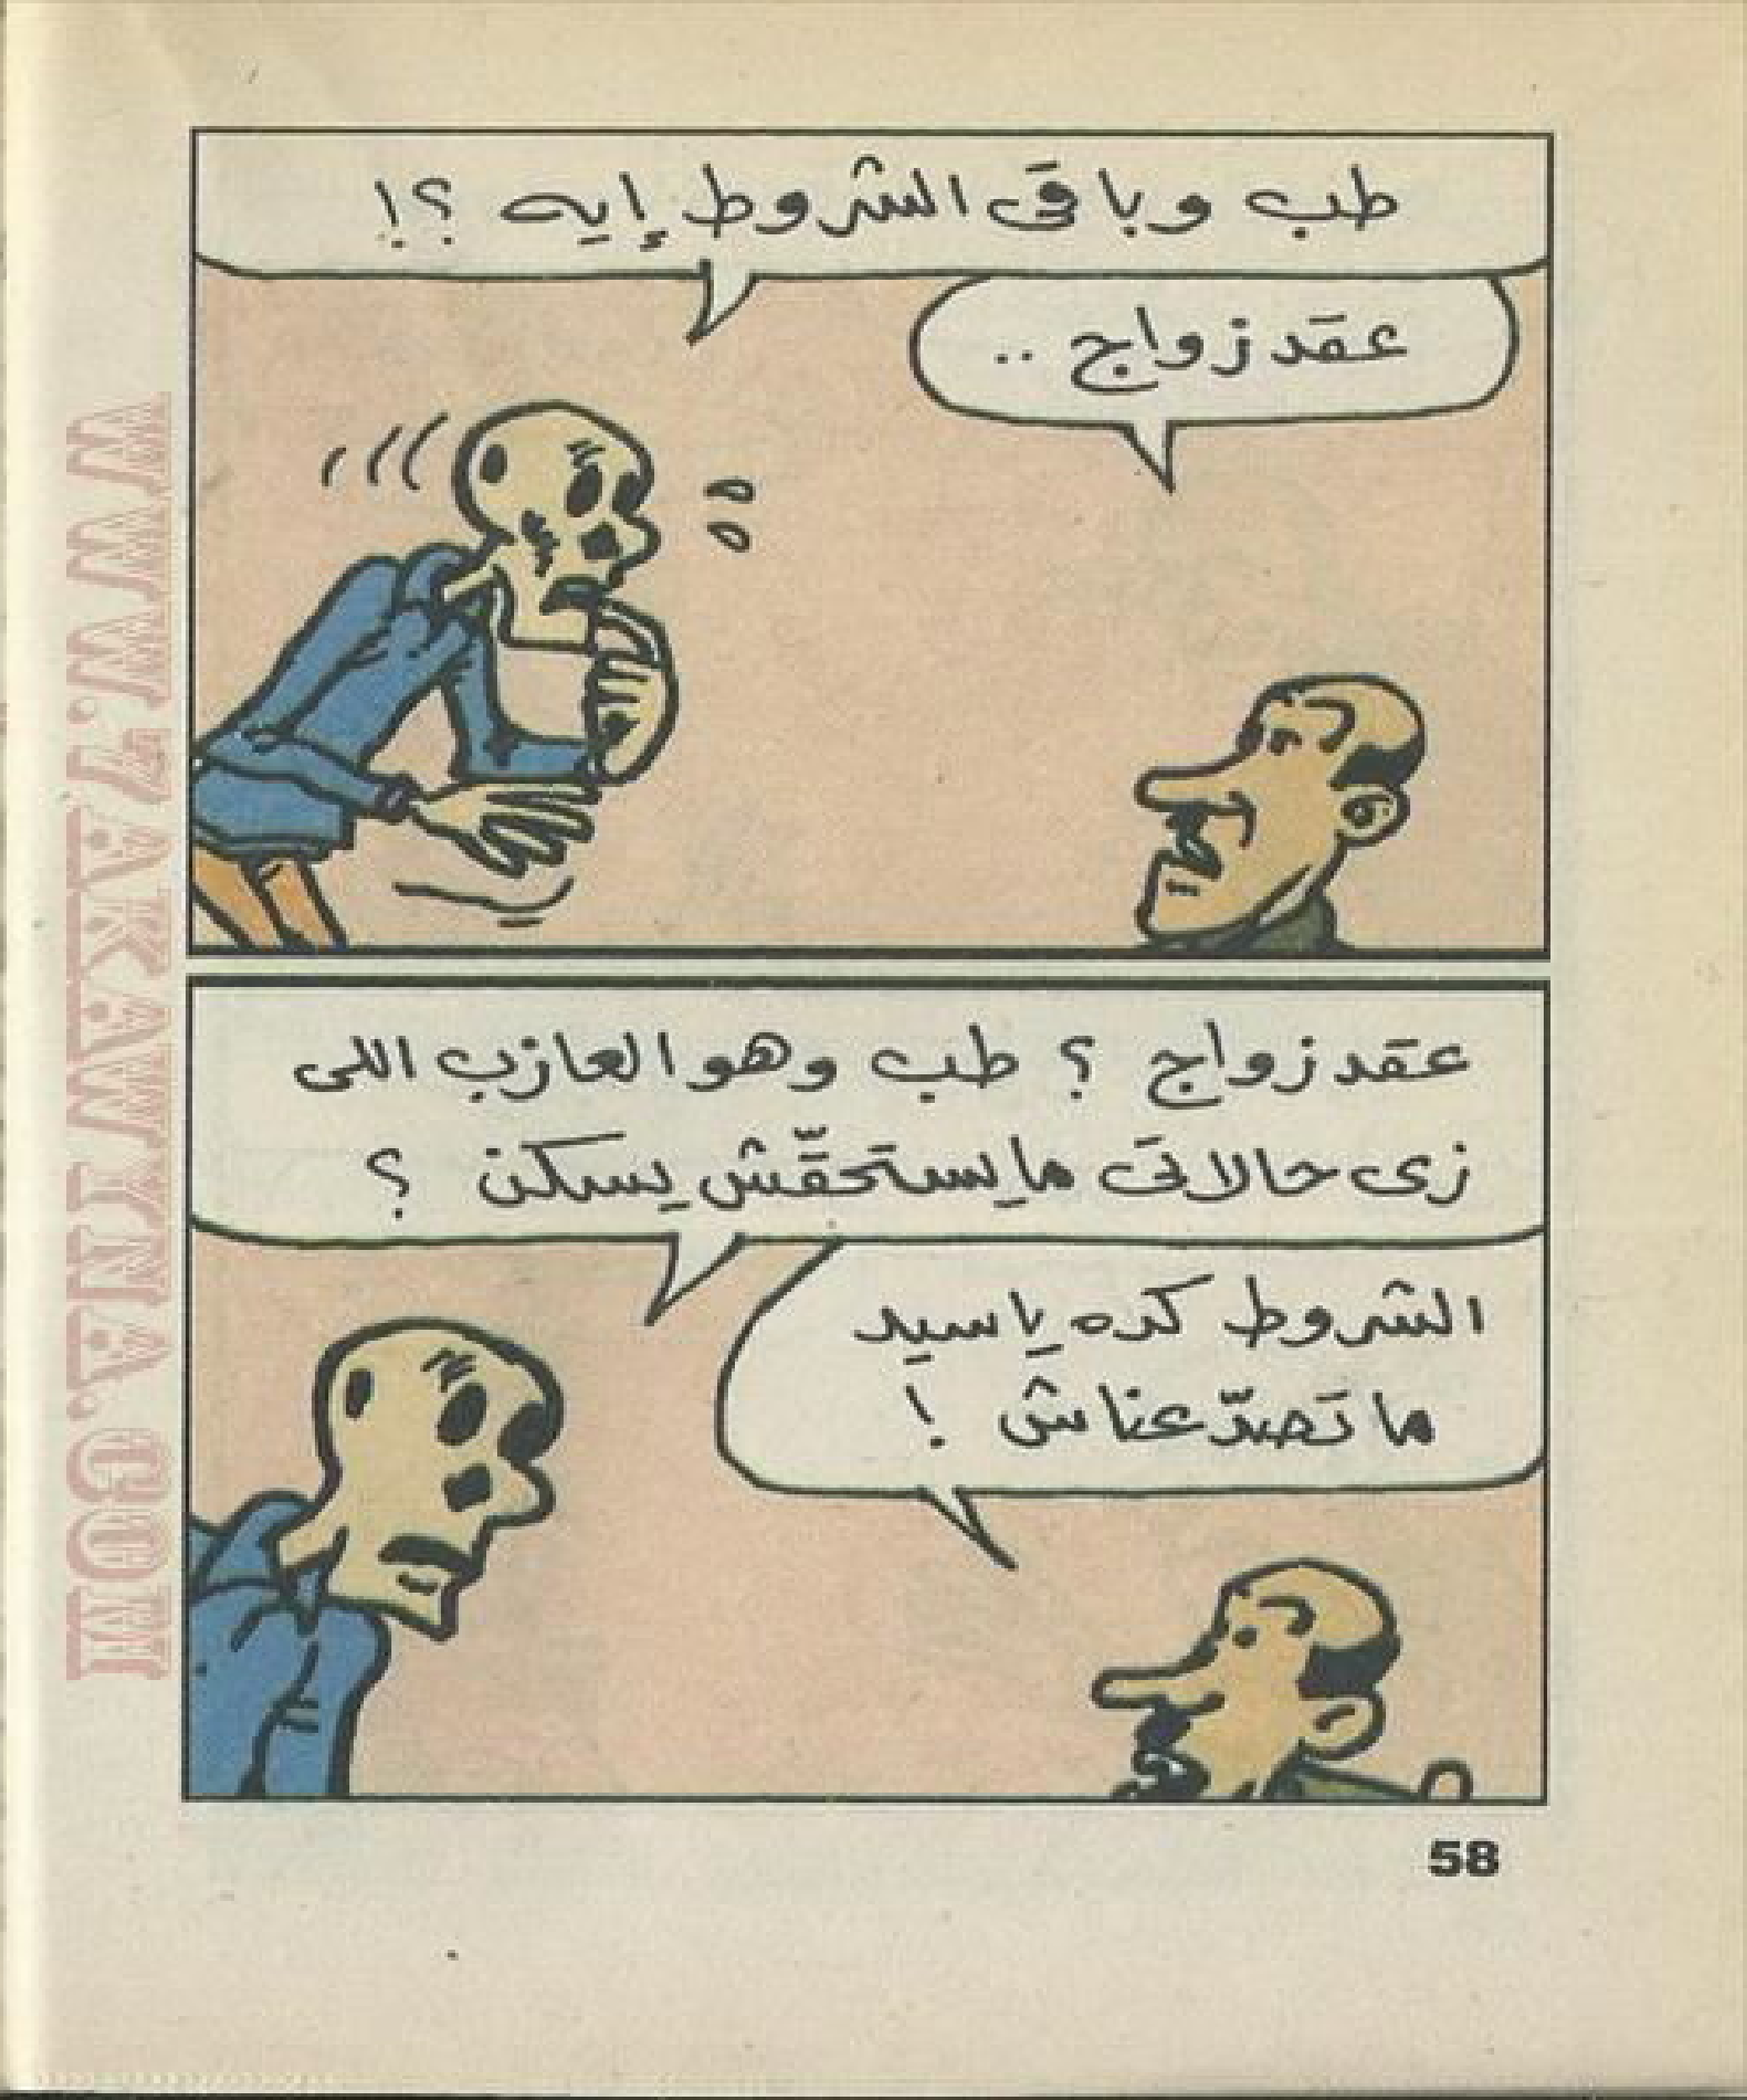 طب وباقى الشروط إيه ؟!
عقد زواج ..
عقد زواج ؟ طب وهو العازب اللى
زى حالاتى ما يستحقّش يسكن ؟
الشروط كده يا سيد
ما تصدّعناش !
58
WWW.7AKAWINA.COM